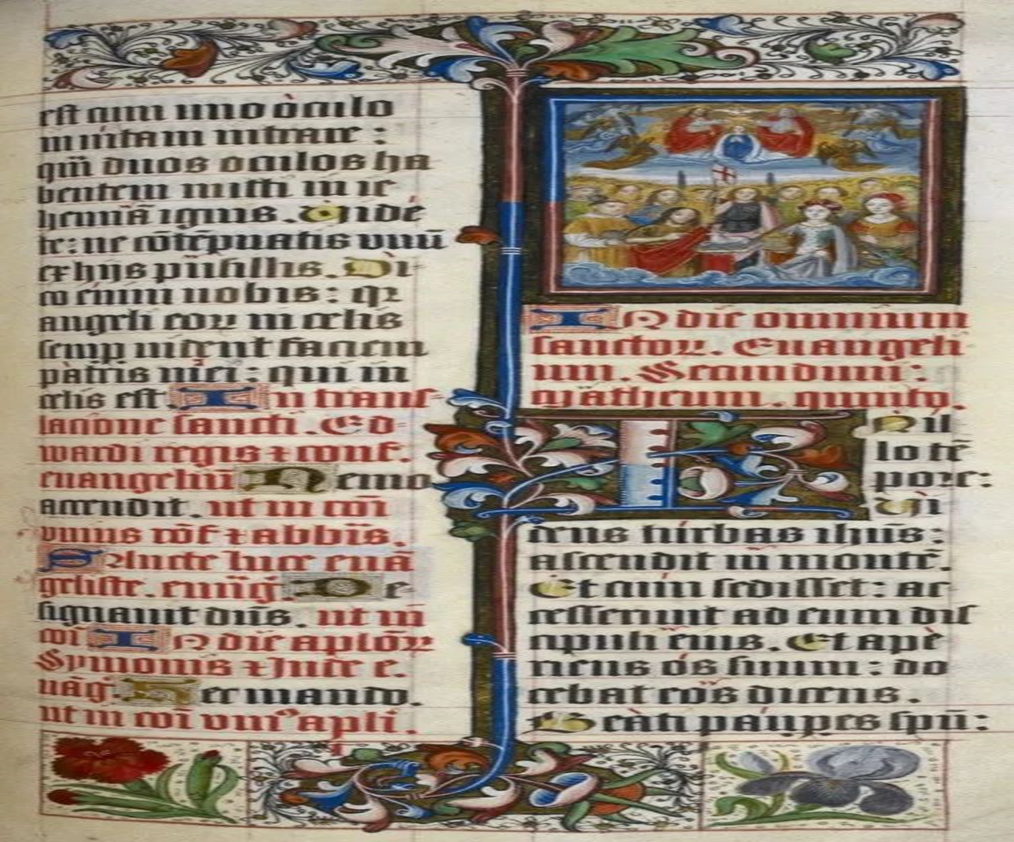 est cum uno oculo
in uitam intrare :
q̄m duos oculos ha
bentem mitti in ie
hennā ignis. Uidé
te: ne cōtēpnatis vnū
ex hijs pūsillis. Di
co enim uobis: qꝛ
angeli eoꝝ in celis
semp̱ uident faciem
pàtris méi: qui in
celis est. In trans
lacione sancti. Ed
wardi regis ⁊ conf.
euangeliū Nemo
accendit. ut in cōi
vnius cōf ⁊ abbīs.
Sancte luce euā
geliste. euūḡ De
signauit dn̄s. ut in
cōi In die aplōꝝ
Symonis ⁊ Jude e.
uāḡ. Hec mando.
ut in cōi vni᷒ apli.
In die omnium
sanctoꝝ. Euangeli
um. Secundum:
Mātheum. quinto.
In il
lo tē
pore:
Ui
dens turbas ihūs:
ascendit in montē.
Et cum sedisset: ac
cesserunt ad eum disc
ipuli eius. Et apè
riens ós suum: do
cebat eos dicens.
Beáti páuꝑes spū: